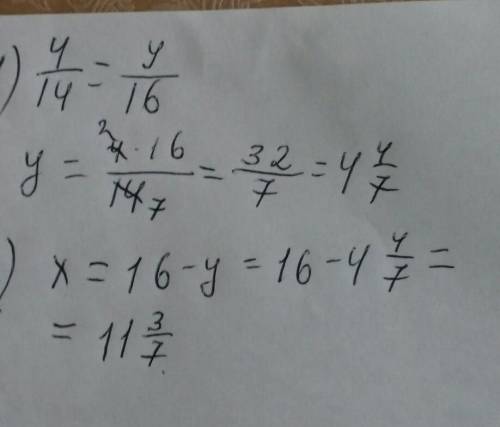 ) 4/14 = y/16
y = 4·16/14 2 7 = 32/7 = 4 4/7
) x = 16 - y = 16 - 4 4/7 =
= 11 3/7